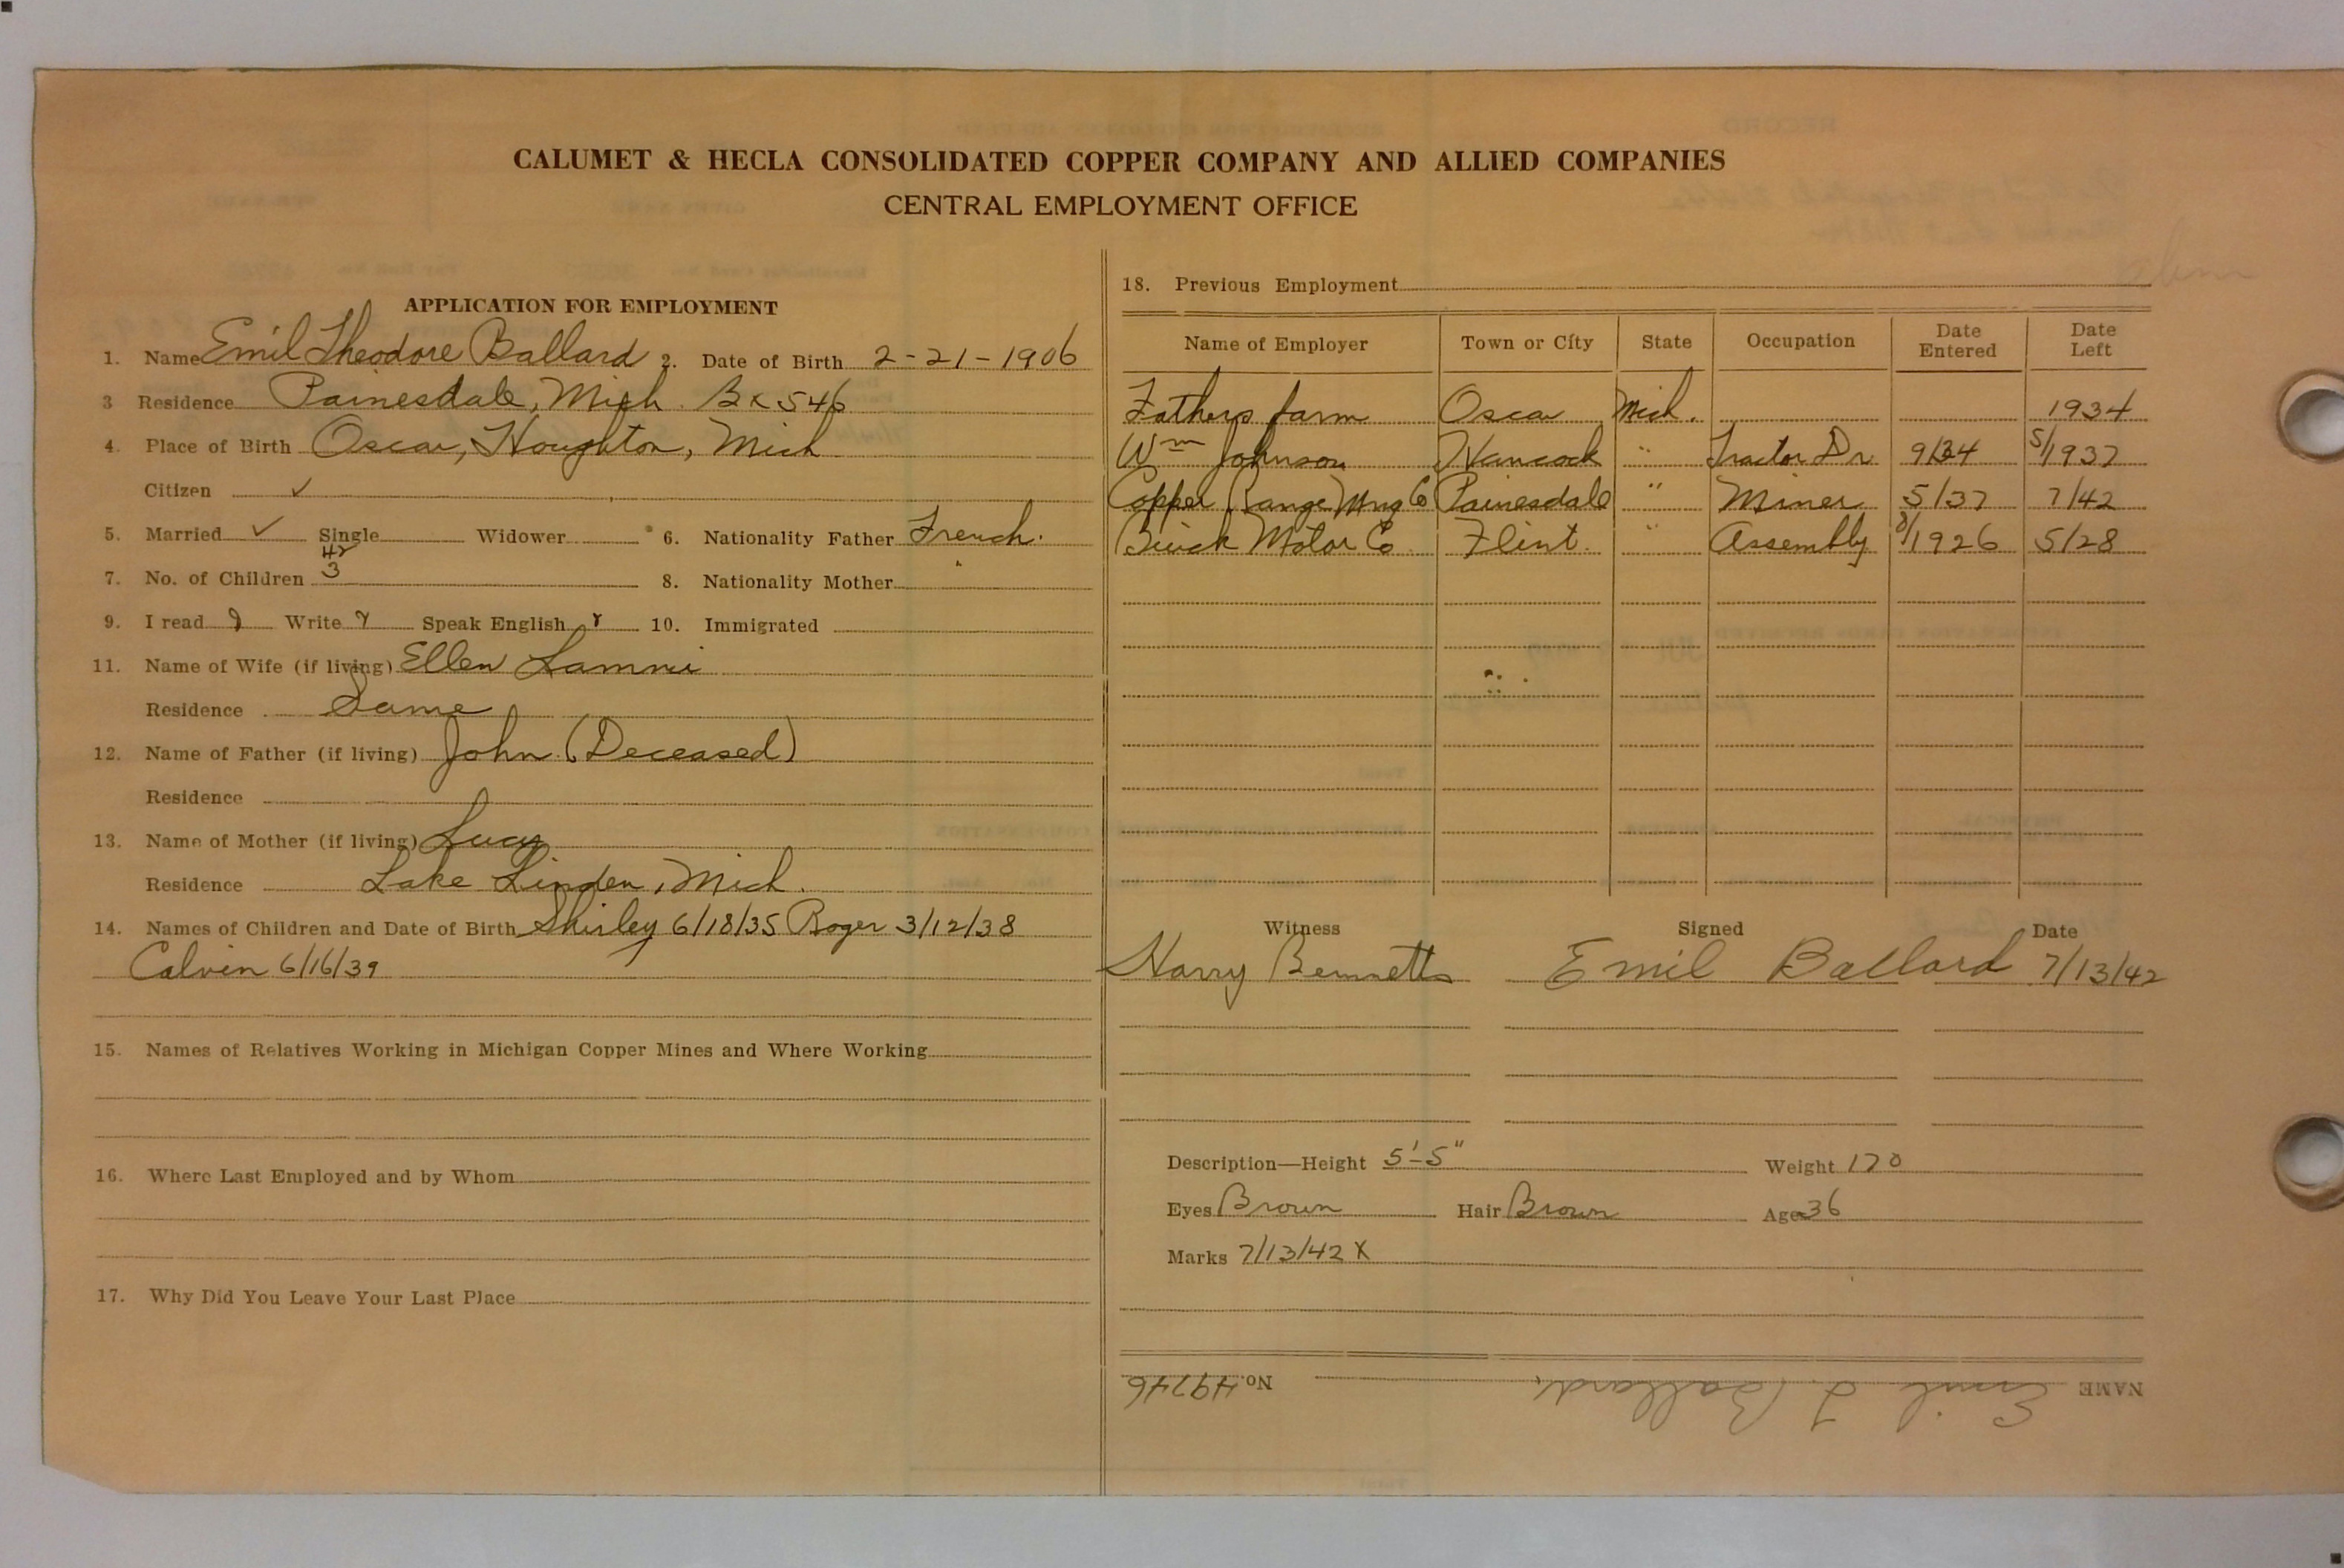 CALUMET & HECLA CONSOLIDATED COPPER COMPANY AND ALLIED COMPANIES
CENTRAL EMPLOYMENT OFFICE
APPLICATION FOR EMPLOYMENT
1. Name Emil Theodore Ballard 2. Date of Birth 2-21-1906
3 Residence Painesdale, Mich. Bx 546
4. Place of Birth Oscar, Houghton, Mich
Citizen ✓
5. Married ✓ Single Widower 6. Nationality Father French.
42
7. No. of Children 3 8. Nationality Mother "
9. I read y Write y Speak English y 10. Immigrated
11. Name of Wife (if living) Ellen Lammi
Residence Same
12. Name of Father (if living) John (Deceased)
Residence
13. Name of Mother (if living) Lucy
Residence Lake Linden, Mich.
14. Names of Children and Date of Birth Shirley 6/18/35 Roger 3/12/38
Calvin 6/16/39
15. Names of Relatives Working in Michigan Copper Mines and Where Working
16. Where Last Employed and by Whom
17. Why Did You Leave Your Last Place
18. Previous Employment
Name of Employer Town or City State Occupation Date Entered Date Left
Fathers farm Oscar Mich. 1934
Wm Johnson Hancock " Tractor Dr 9/34 5/1937
Copper Range Mng Co Painesdale " Miner 5/37 7/42
Buick Motor Co. Flint. " Assembly 8/1926 5/28
Witness Signed Date
Harry Bennetts Emil Ballard 7/13/42
Description—Height 5'-5" Weight 170
Eyes Brown Hair Brown Age 36
Marks 7/13/42 X
NAME Emil T. Ballard. No. 49746